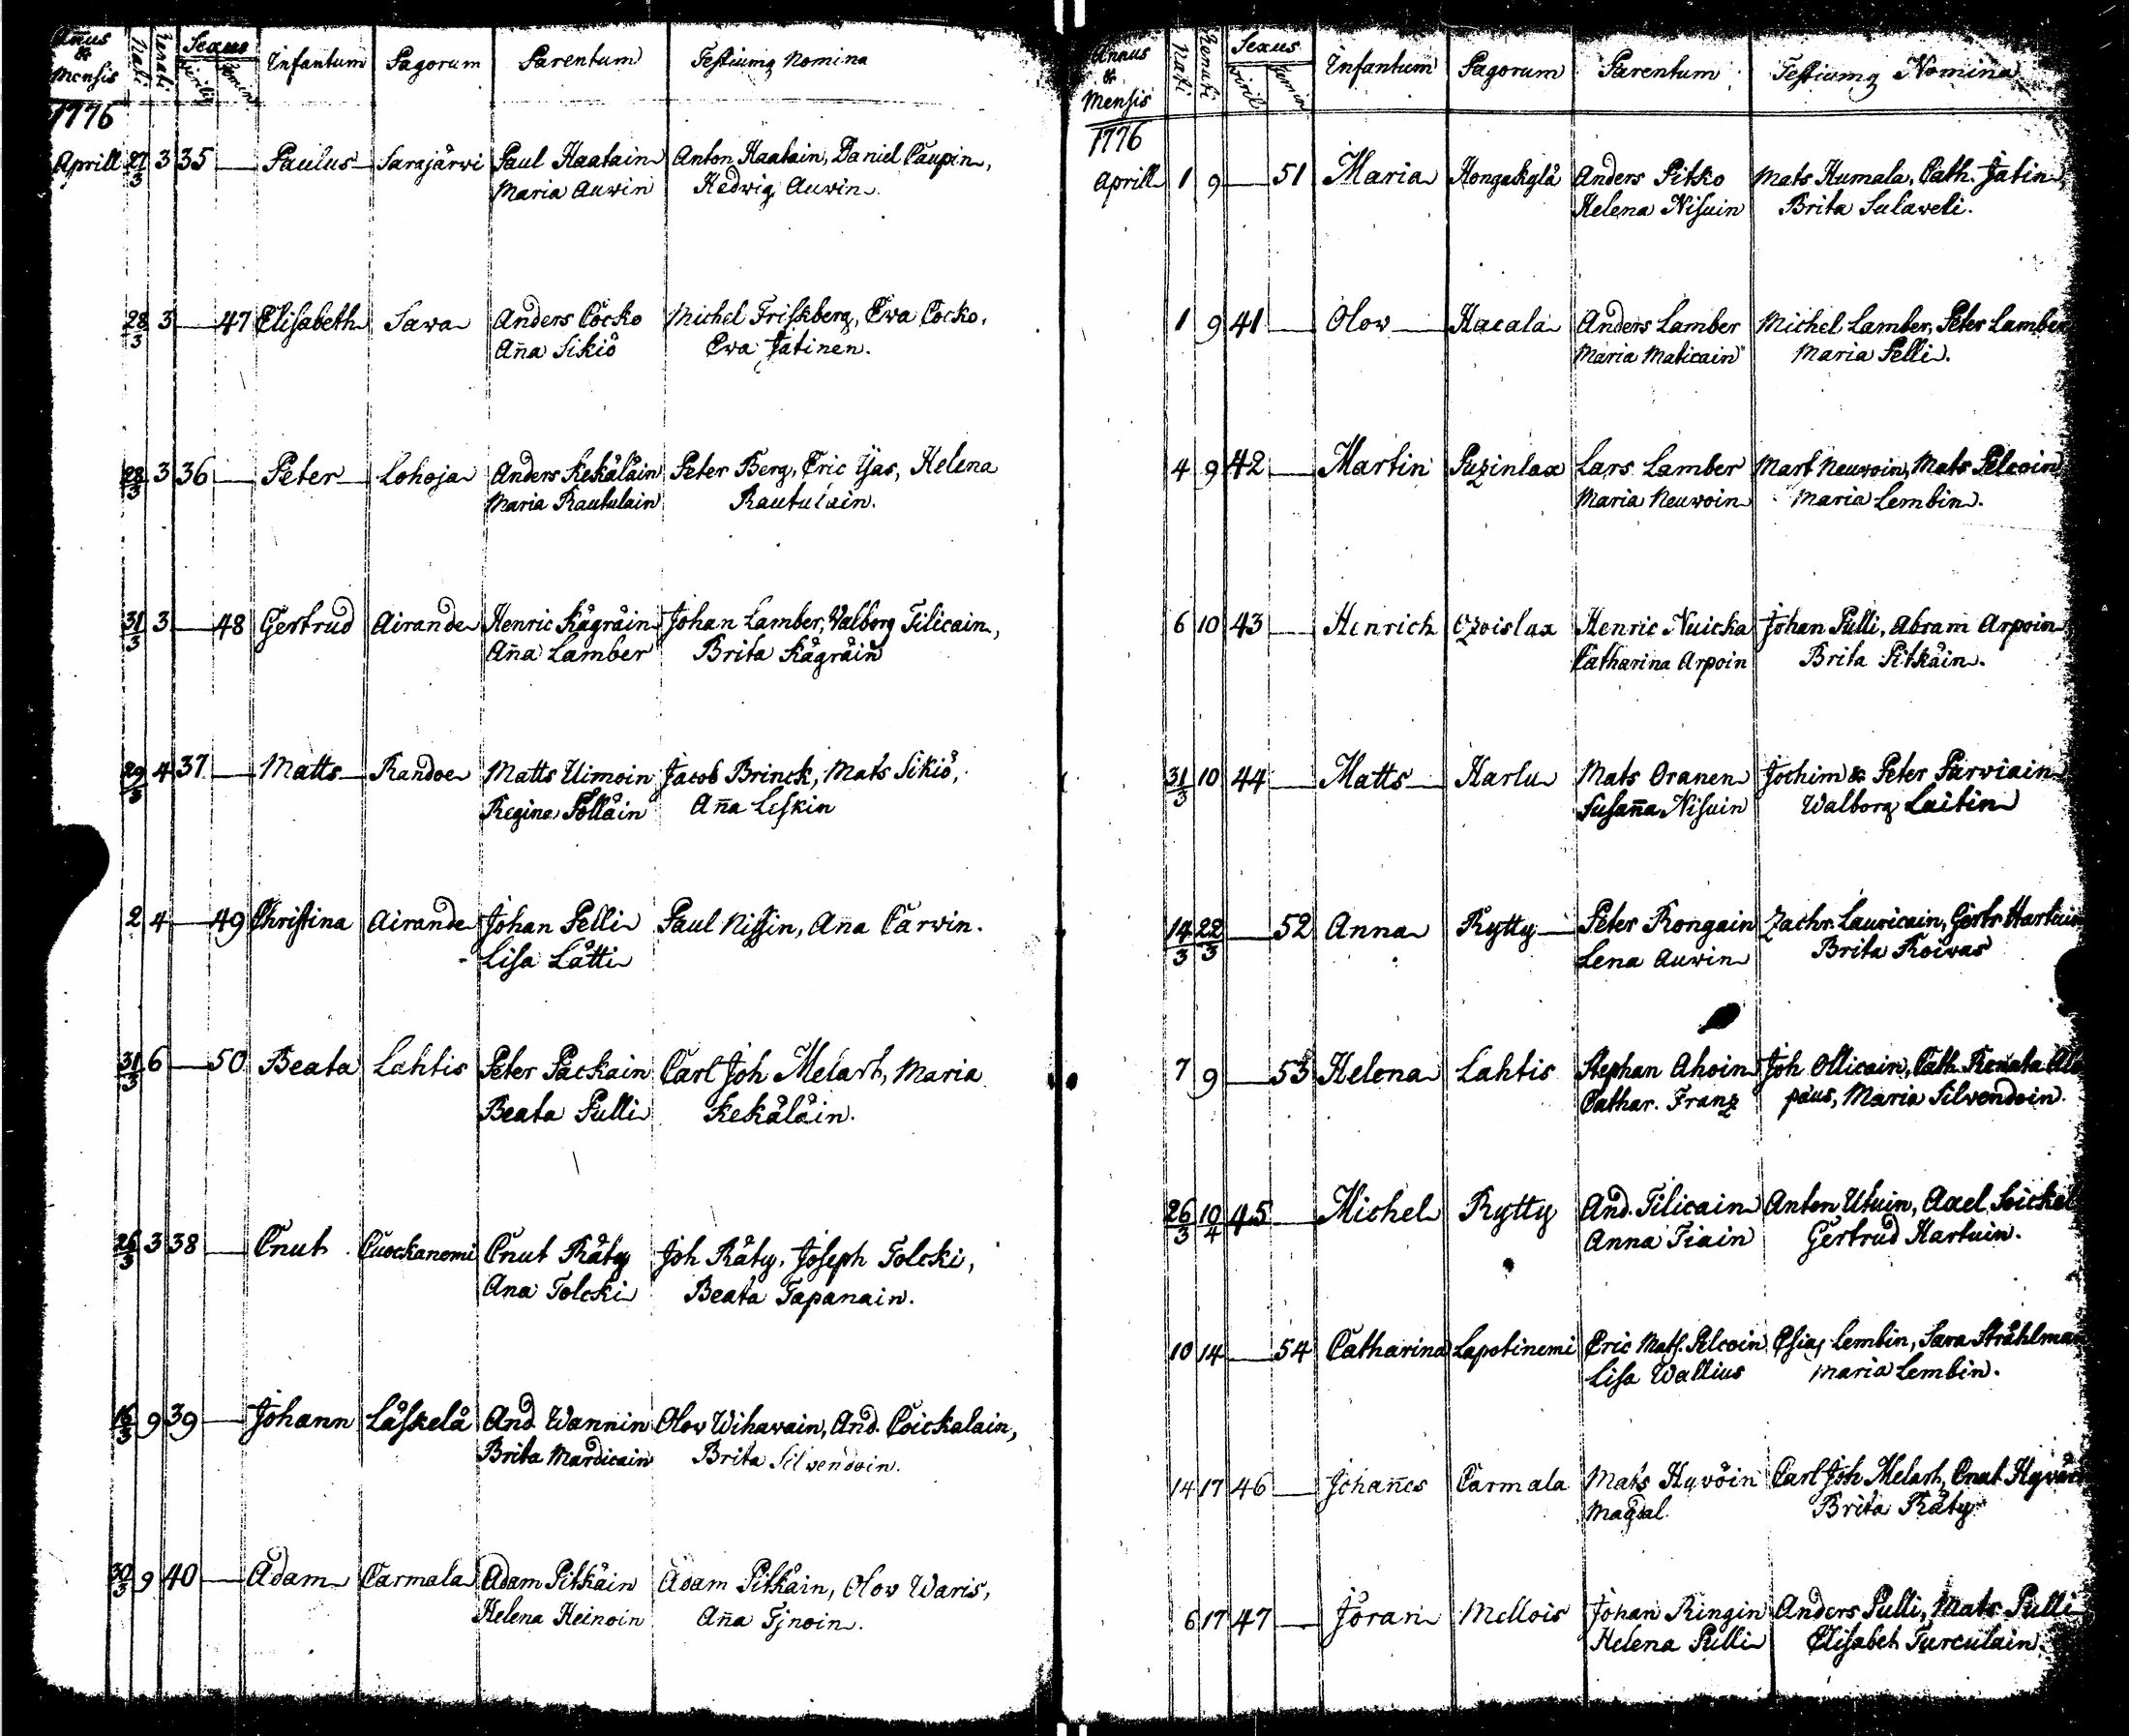 Añus & Mensis Nati Renati Sexus virilis femin Infantum Pagorum Parentum Testiumq Nomina
1776
Aprill 27/3 3 35 — Paulus Sarajärwi Paul Haatain Anton Haatain, Daniel Caupin,
Maria Auwin Hedwig Auwin.
28/3 3 — 47 Elisabeth Sawa Anders Cocko Michel Friskberg, Ewa Cocko,
Aña Sikiö Ewa Jatinen.
28/3 3 36 — Peter Lohoja Anders Kekäläin Peter Berg, Eric Ijas, Helena
Maria Rautulain Rautulain.
31/3 3 — 48 Gertrud Airande Henric Kägräin Johan Lamber, Valborg Tilicain,
Aña Lamber Brita Kägräin
29/3 4 37 — Matts Randoe Matts Uimoin Jacob Brinck, Mats Sikiö,
Regina Pölläin Aña Leskin
2 4 — 49 Christina Airande Johan Pelli Paul Nissin, Ana Carwin.
Lisa Lätti
31/3 6 — 50 Beata Lahtis Peter Packain Carl Joh Melart, Maria
Beata Pulli Kekäläin.
26/3 3 38 — Cnut Cuockanemi Cnut Räty Joh Räty, Joseph Tolcki,
Ana Tolcki Beata Tapanain.
16/3 9 39 — Johann Läskelä And. Wannin Olow Wihawain, And. Coickalain,
Brita Mardicain Brita Silwendoin.
30/3 9 40 — Adam Carmala Adam Pitkäin Adam Pitkäin, Olow Waris,
Helena Heinoin Aña Tjnoin.
Annus & Mensis Nati Renati Sexus viril femin Infantum Pagorum Parentum Testiumq Nomina
1776
Aprill 1 9 — 51 Maria Hongakylä Anders Pitko Mats Humala, Cath. Jatin,
Helena Nisuin Brita Sulaweli.
1 9 41 — Olow Hacala Anders Lamber Michel Lamber, Peter Lamber
Maria Maticain Maria Pelli.
4 9 42 — Martin Puzinlax Lars Lamber Mart Neuwoin, Mats Pelcoin
Maria Neuwoin Maria Lembin.
6 10 43 — Henrich Ozoislax Henric Nuicka Johan Pulli, Abram Arpoin
Catharina Arpoin Brita Pitkäin.
31/3 10 44 — Matts Harlu Mats Oranen Jochim & Peter Parwiain
Susaña Nisuin Walborg Laitin
14/3 22/3 — 52 Anna Rytty Peter Rongain Zachr. Lauricain, Gertr Hartuin
Lena Auwin Brita Roiwas
7 9 — 53 Helena Lahtis Stephan Ahoin Joh Ollicain, Cath. Renata
Cathar. Franz Maria Silwendoin.
26/3 10/4 45 — Michel Rytty And. Tilicain Anton Utuin, Axel
Anna Tiain Gertrud Hartuin.
10 14 — 54 Catharina Lapotinemi Eric Mats. Pelcoin Esias Lembin, Sara Stråhlman
Lisa Wallius Maria Lembin.
14 17 46 — Johañes Carmala Mats Hyvöin Carl Joh Melart, Cnut
Magdal. Brita Räty
6 17 47 — Jöran Mellois Johan Ringin Anders Pulli, Mats Pulli
Helena Pulli Elisabet Turculain.